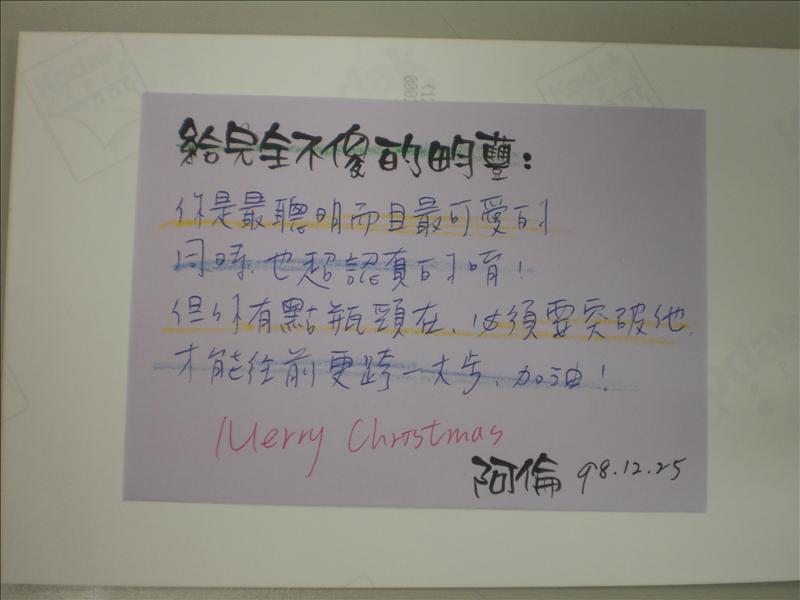 給完全不傻的畇豐：
你是最聰明而且最可愛的
同時.也超認真的唷！
但你有點瓶頸在.必須要突破他.
才能往前更跨一大步.加油！
Merry Christmas
阿倫 98.12.25
Kodak